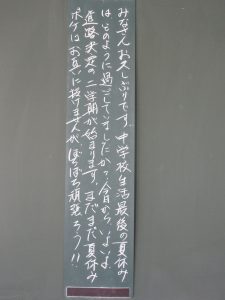 みなさんお久しぶりです。中学校生活最後の夏休み
はどのように過ごしていましたか?今日からいよいよ
進路決定の二学期が始まります。まだまだ夏休み
ボケはお互いに抜けませんが、ぼちぼち頑張ろう!!